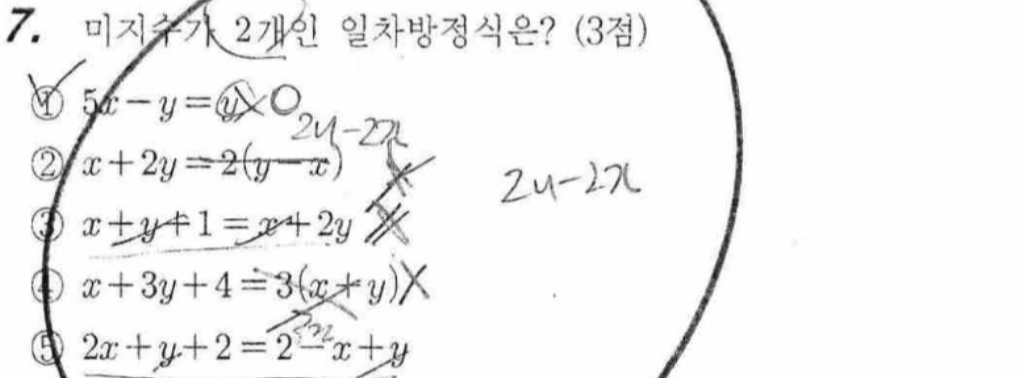 7. 미지수가 2개인 일차방정식은? (3점)
① 5x-y=y
② x+2y=2(y-x)
2y-2x
2y-2x
③ x+y+1=x+2y
④ x+3y+4=3(x+y)
⑤ 2x+y+2=2-x+y